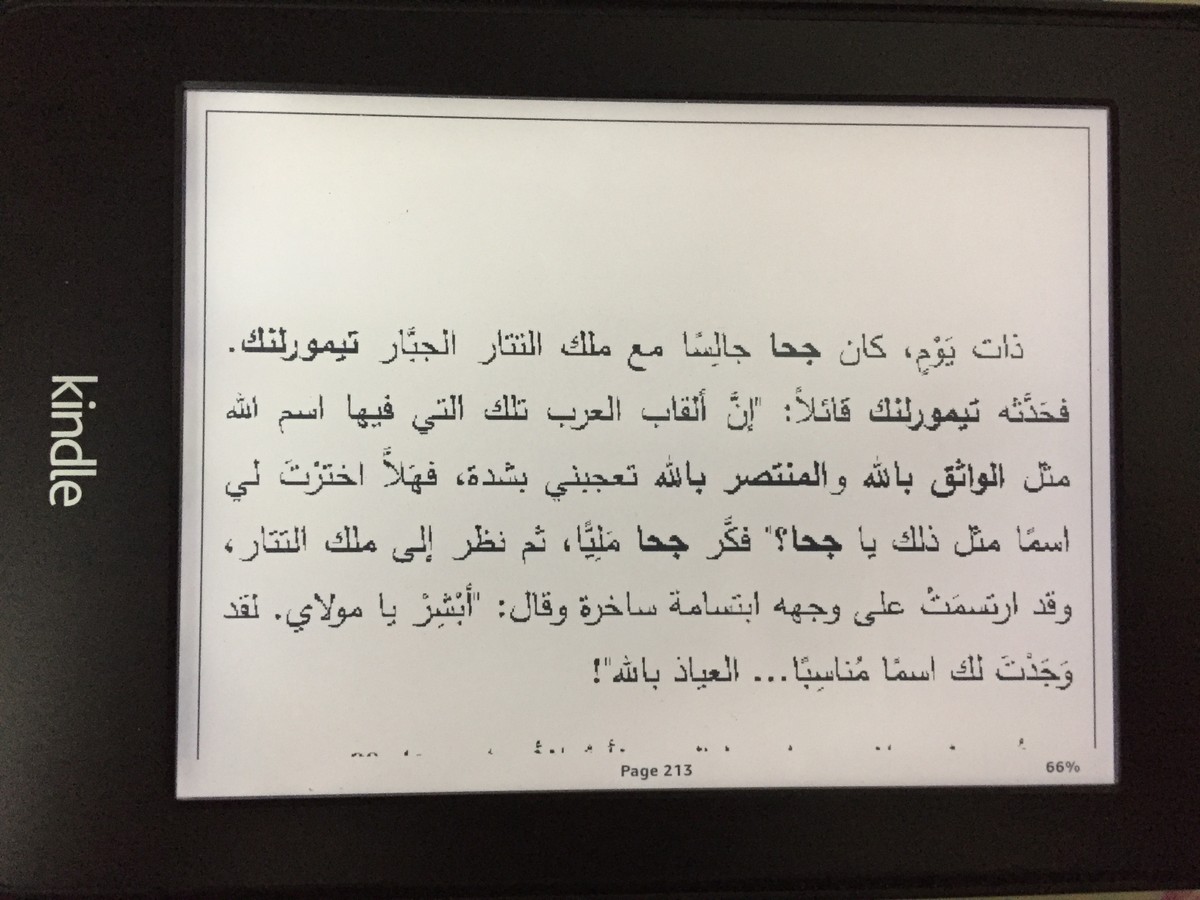 ذات يَوْمٍ، كان جحا جالِسًا مع ملك التتار الجبَّار تيمورلنك.
فحَدَّثه تيمورلنك قائلاً: "إنَّ ألقاب العرب تلك التي فيها اسم الله
مثل الواثق بالله والمنتصر بالله تعجبني بشدة، فهَلاَّ اخترْتَ لي
اسمًا مثل ذلك يا جحا؟" فكَّر جحا مَلِيًّا، ثم نظر إلى ملك التتار،
وقد ارتسمَتْ على وجهه ابتسامة ساخرة وقال: "أبْشِرْ يا مولاي. لقد
وَجَدْتَ لك اسمًا مُناسِبًا... العياذ بالله"!
Page 213
66%
kindle